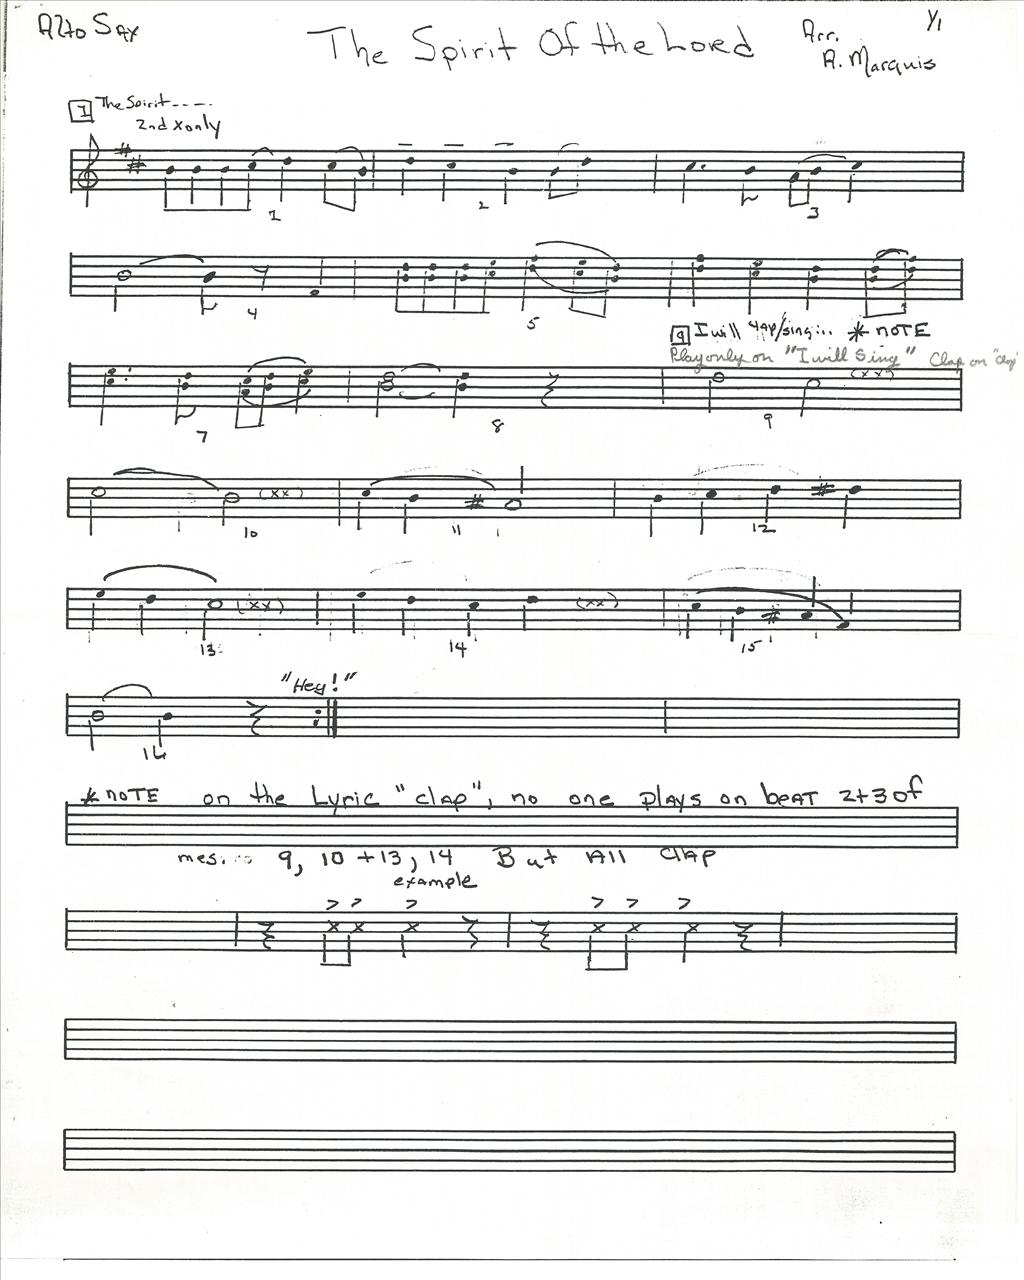 Alto Sax
The Spirit Of the Lord
Arr.
R. Marquis
1/1
1 The Spirit----.
2nd x only
1 2 3
4 5
9 I will clap/sing... * NOTE
Play only on "I will Sing" Clap on "clap"
(xx)
7 8 9
(xx)
10 11 12
(xx) (xx)
13 14 15
"Hey!"
16
* NOTE on the Lyric "clap", no one plays on beat 2+3 of
mes. 9, 10 + 13, 14 But All Clap
example